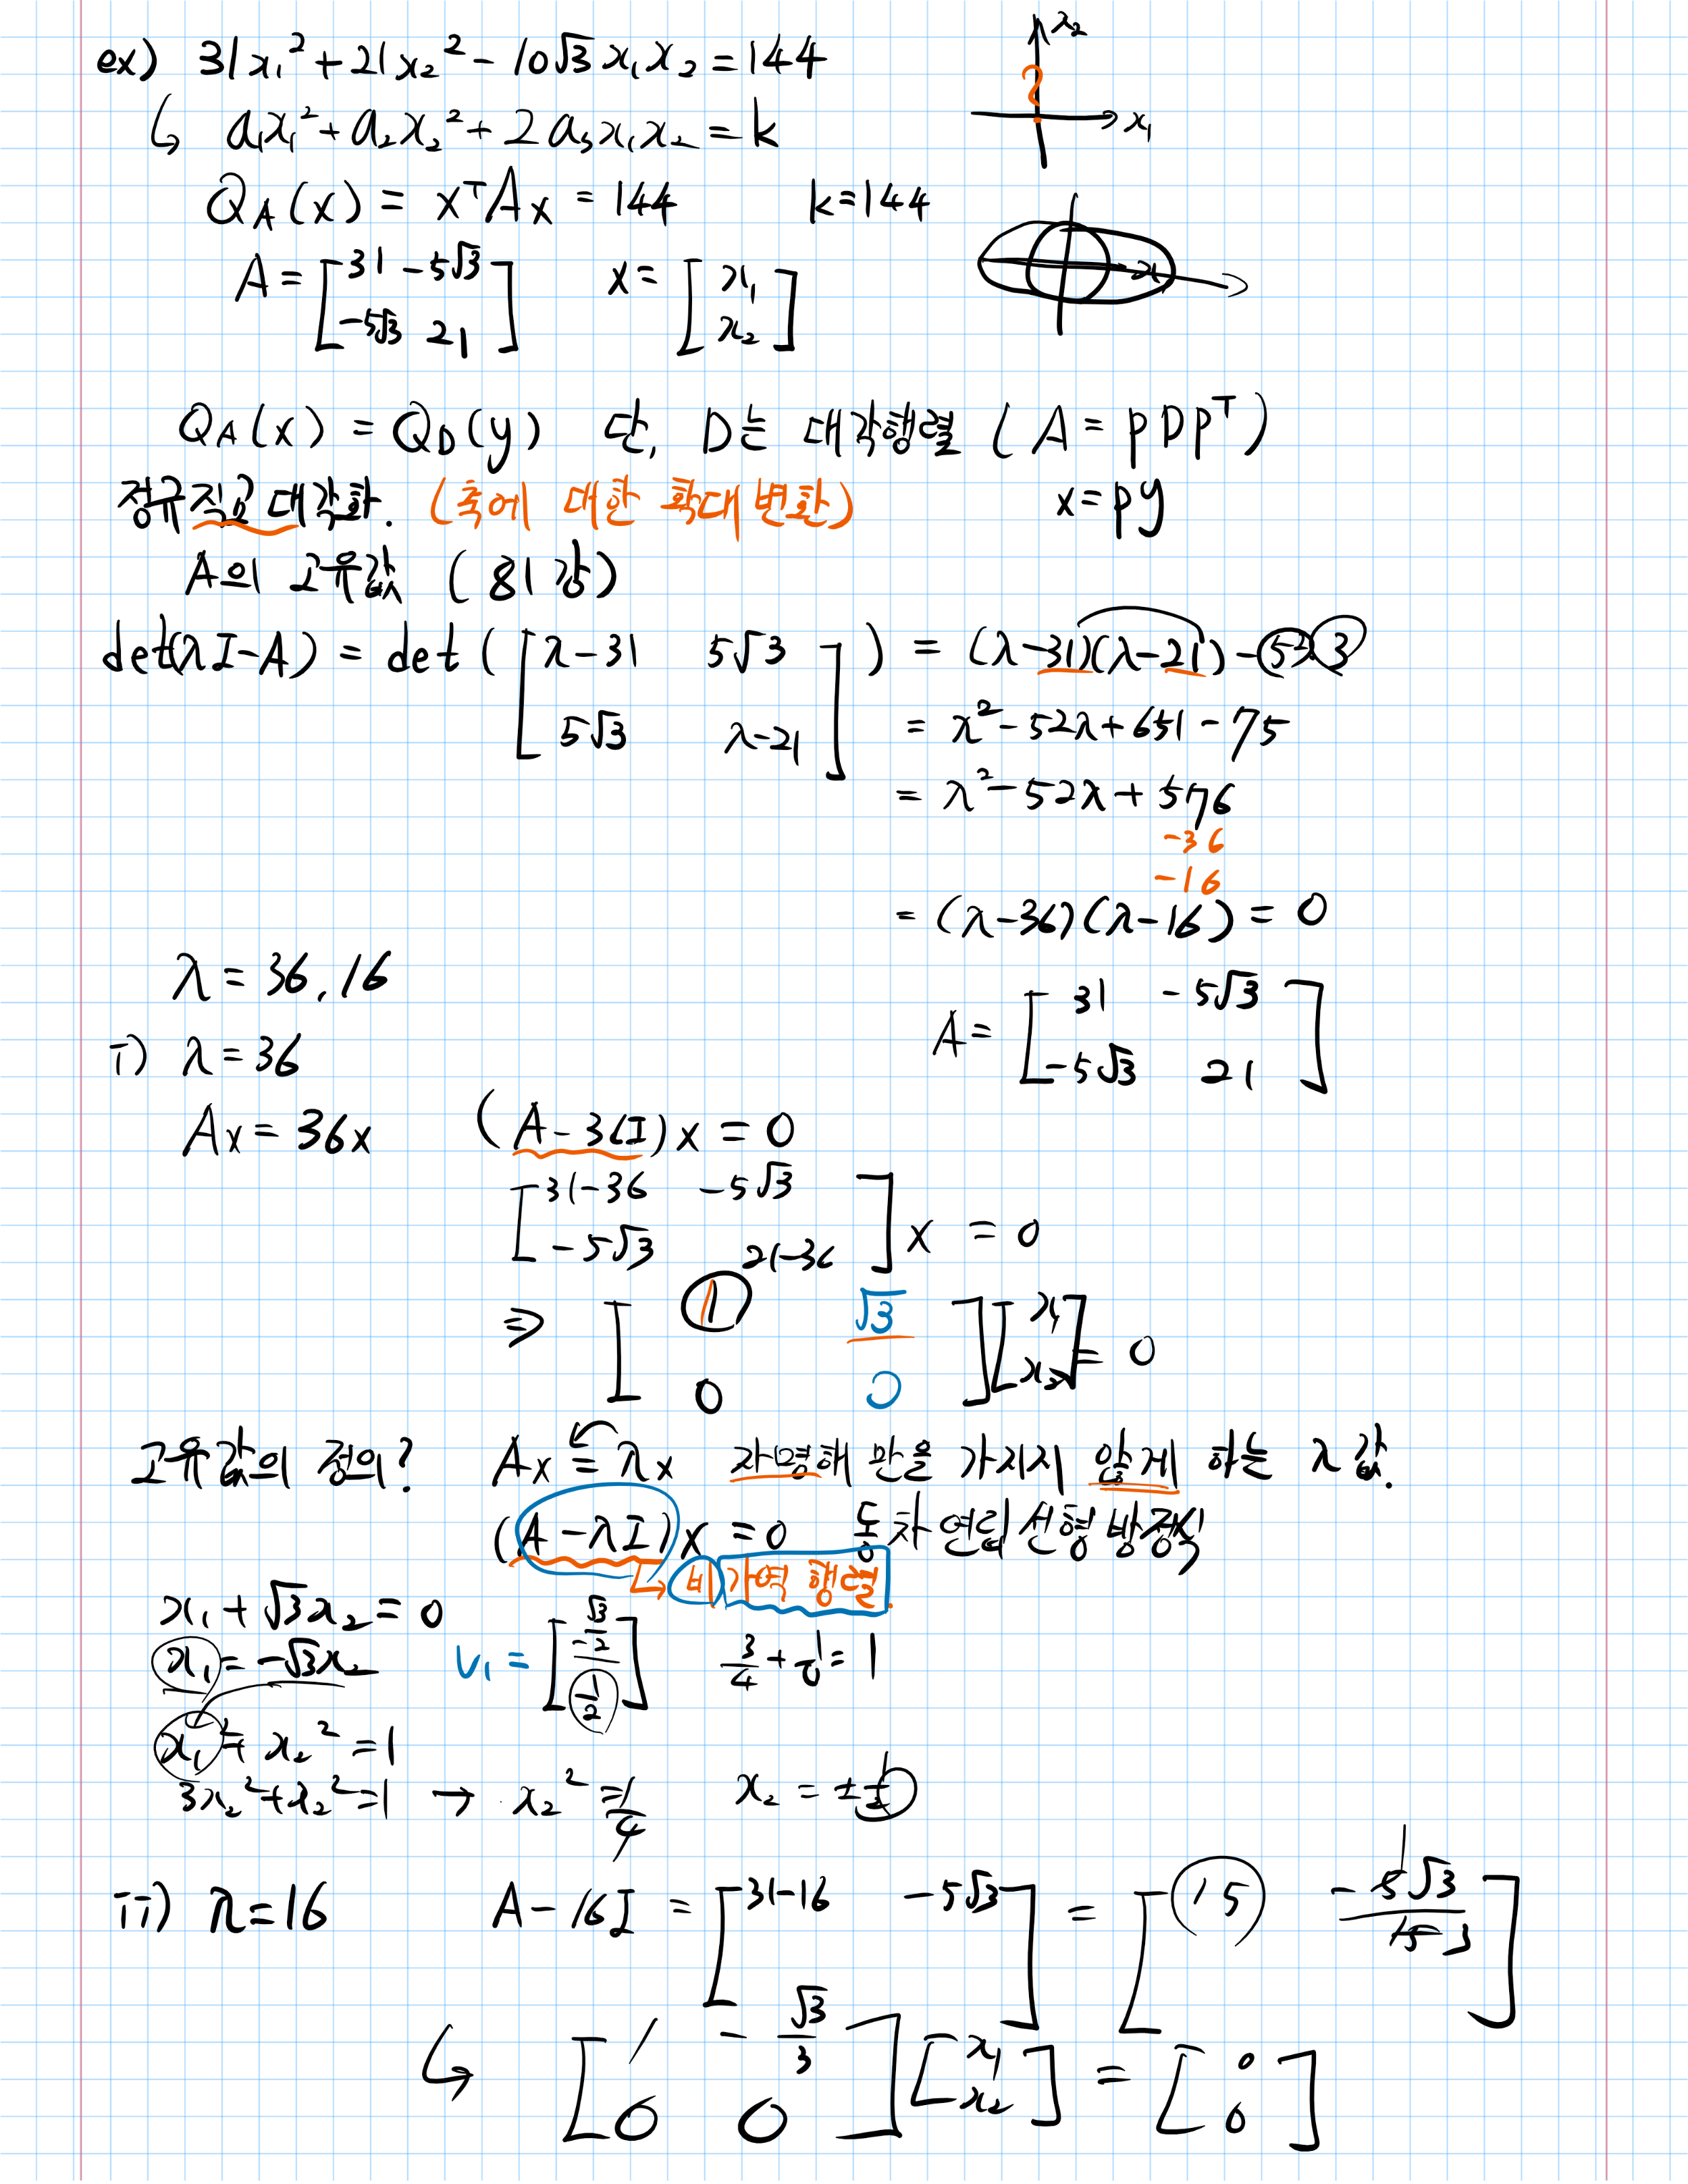 ex) 31x₁² + 21x₂² - 10√3 x₁x₂ = 144
↳ a₁x₁² + a₂x₂² + 2a₃x₁x₂ = k
x₂
x₁
Q_A(x) = xᵀAx = 144 k=144
A = [31 -5√3; -5√3 21] x = [x₁; x₂]
x₁
Q_A(x) = Q_D(y) 단, D는 대각행렬 (A = PDPᵀ)
정규직교 대각화. (축에 대한 확대변환) x = Py
A의 고유값 (81강)
det(λI-A) = det([λ-31 5√3; 5√3 λ-21]) = (λ-31)(λ-21) - 5²·3
= λ² - 52λ + 651 - 75
= λ² - 52λ + 576
-36
-16
= (λ-36)(λ-16) = 0
λ = 36, 16
A = [31 -5√3; -5√3 21]
i) λ = 36
Ax = 36x (A - 36I)x = 0
[31-36 -5√3; -5√3 21-36] x = 0
⇒ [1 √3; 0 0][x₁; x₂] = 0
고유값의 정의? Ax = λx 자명해 만을 가지지 않게 하는 λ 값.
(A - λI)x = 0 동차 연립 선형 방정식
↳ 비가역 행렬.
x₁ + √3x₂ = 0
x₁ = -√3x₂ v₁ = [-√3/2; 1/2] 3/4 + 1/4 = 1
x₁² + x₂² = 1
3x₂² + x₂² = 1 → x₂² = 1/4 x₂ = ± 1/2
ii) λ = 16 A - 16I = [31-16 -5√3] = [15 -5√3/15 1 3]
↳ [1 -√3/3; 0 0][x₁; x₂] = [0; 0]